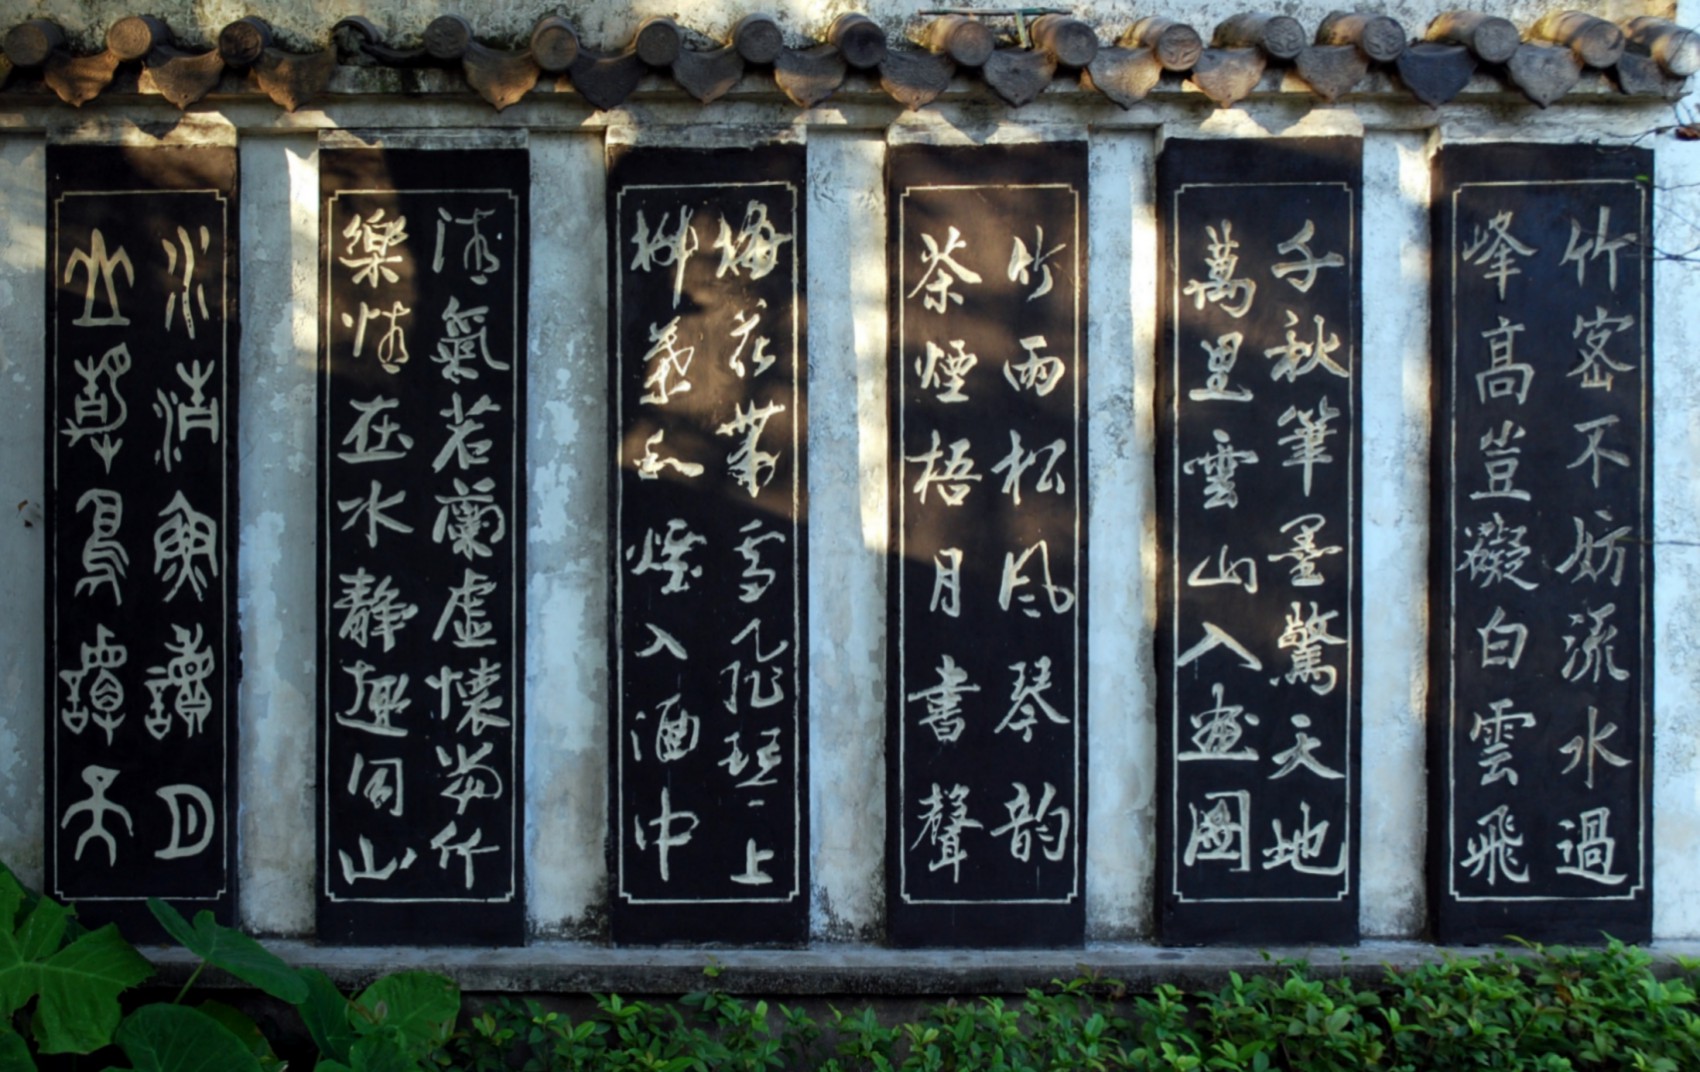 竹密不妨流水過
峰高豈礙白雲飛
千秋筆墨驚天地
萬里雲山入畫圖
竹雨松风琴韵
茶煙梧月書聲
梅花帶雪飛琴上
柳葉和煙入酒中
清氣若蘭虛懷當竹
樂情在水靜趣同山
水清魚讀月
山鳥譚天